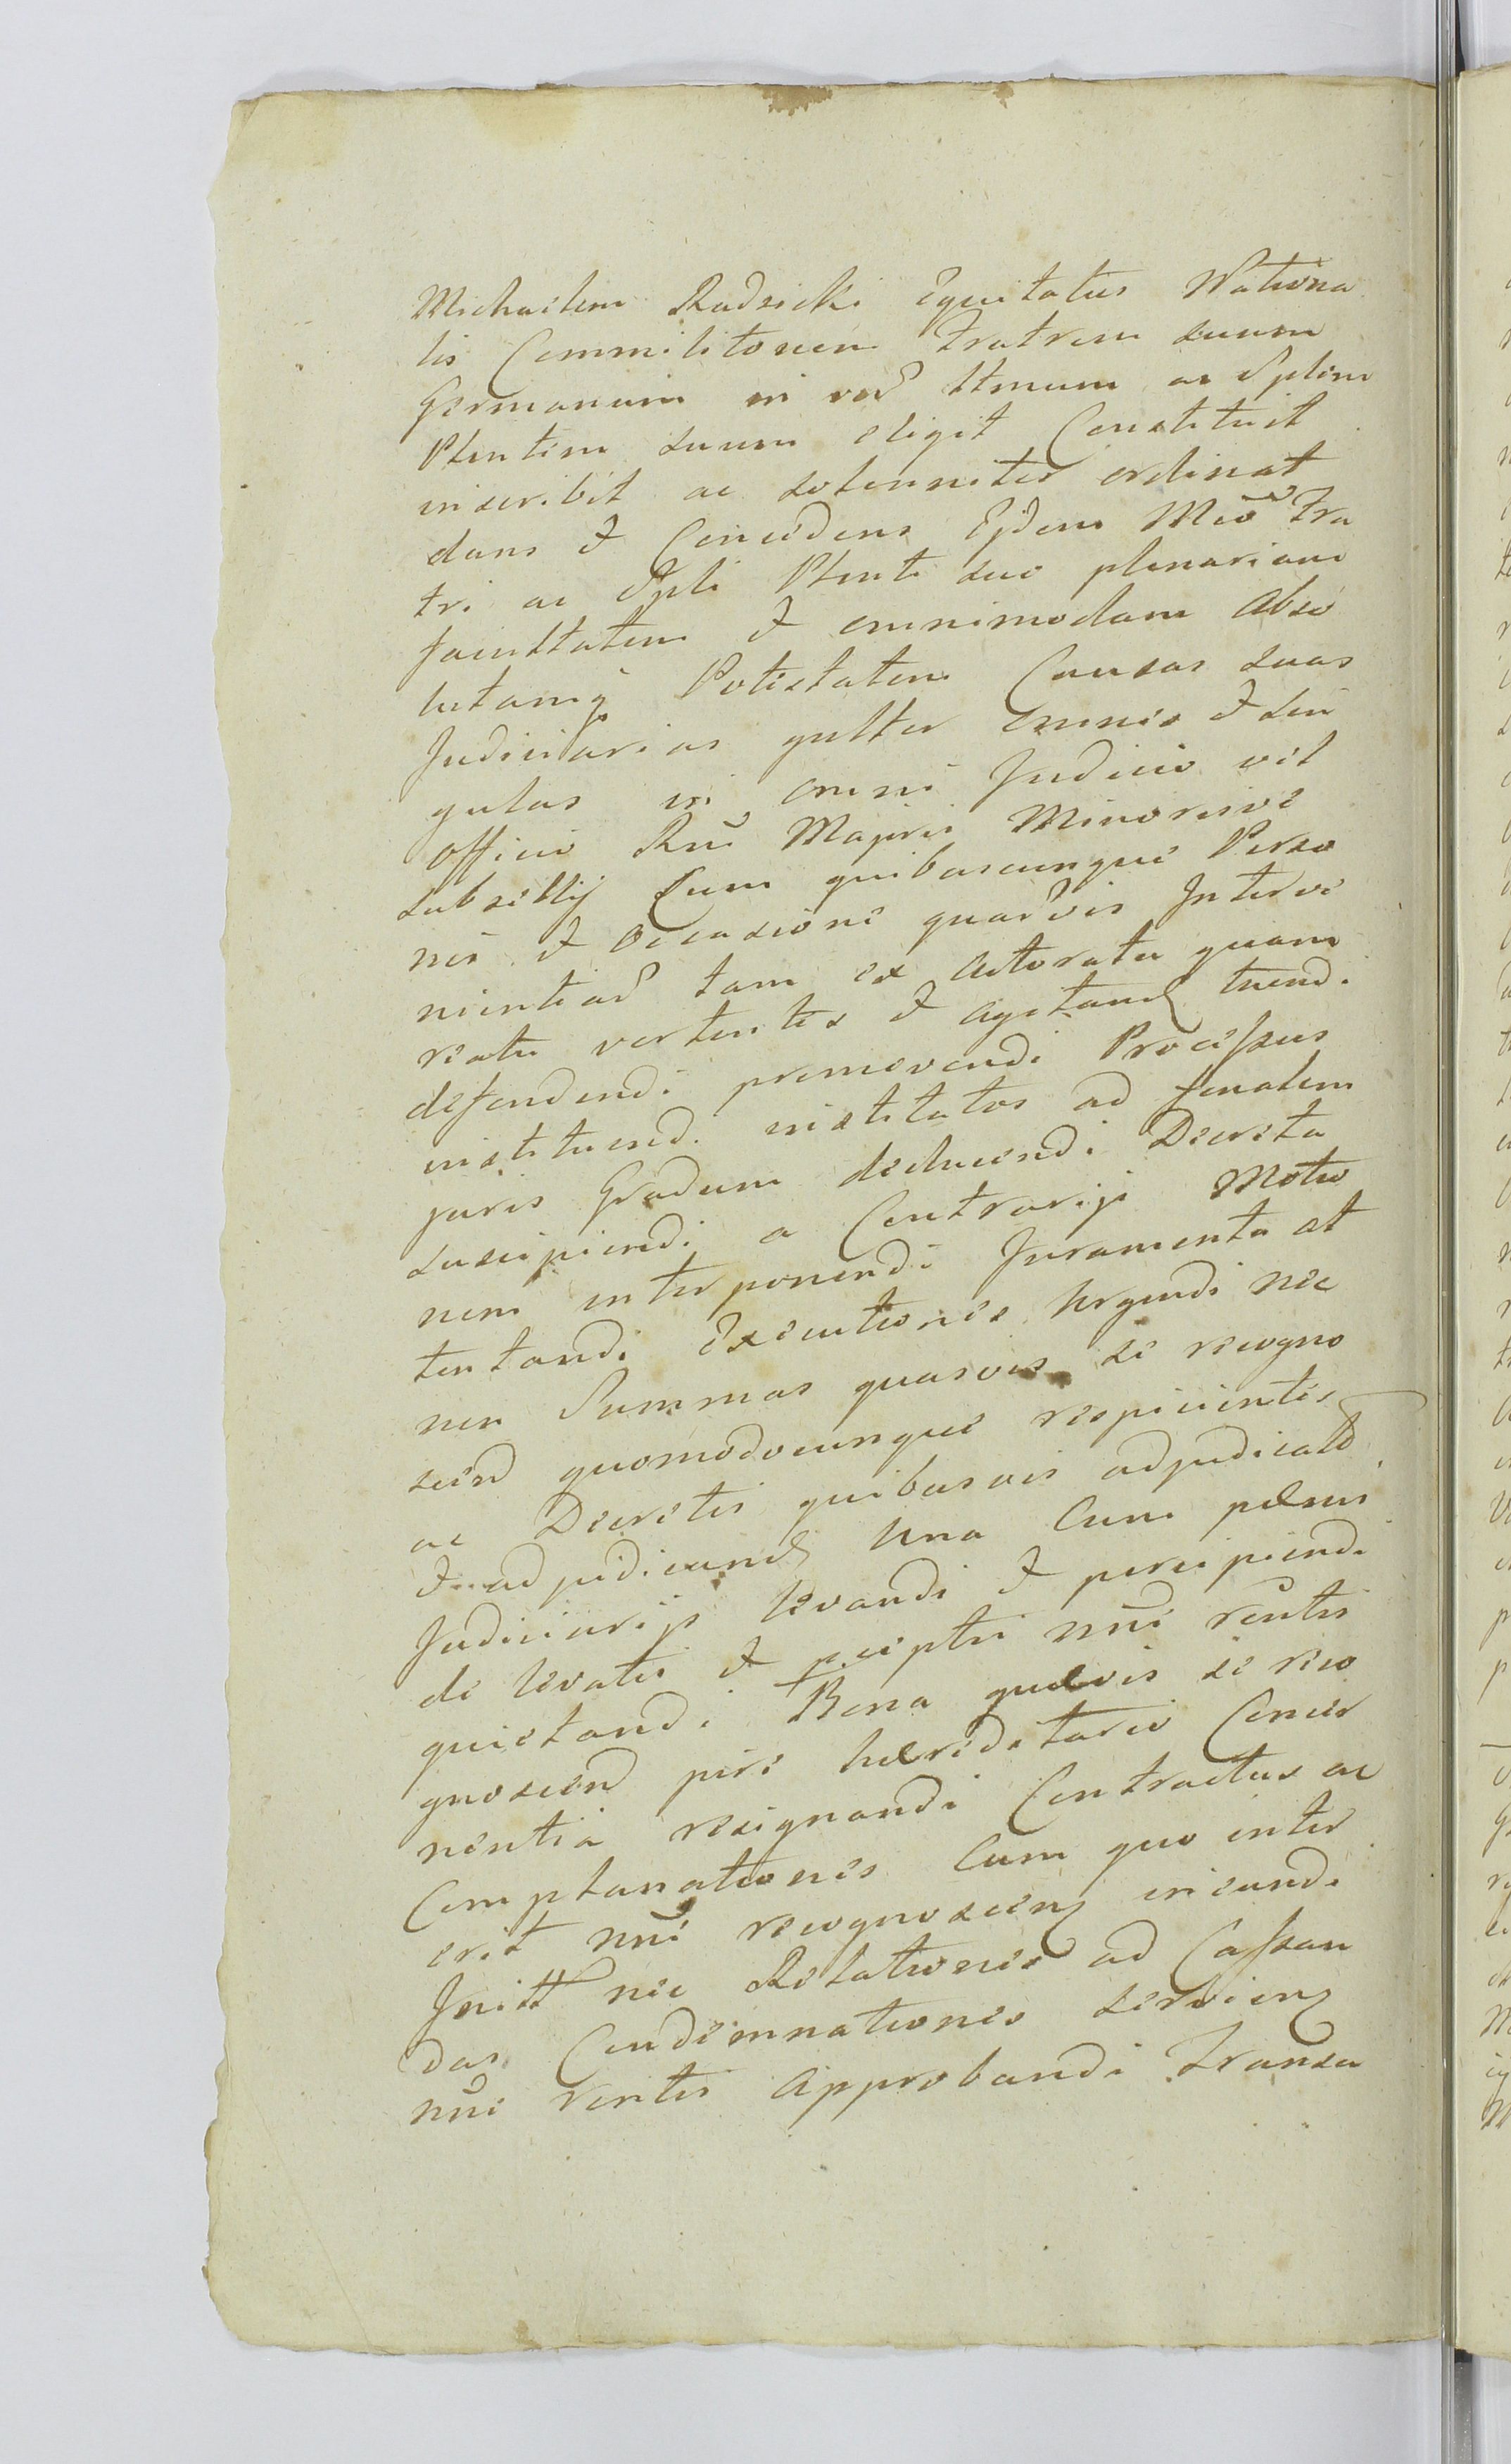 Michaelem Radzicki Equitatus Nationa
lis Commilitonem Fratrem suum
Germanum in verum lttmum ac Splem
Plentem suum eligit Constituit
inscribit ac solenniter ordinat
dans & Concedens Ejdem Mco Fra
tri ac Spli Plenti suo plenariam
facultatem & omnimodam Abso
lutamq Potestatem Causas suas
Judiciarias gnlter omnes & sin
gulas in omni Judicio vel
officio Rni Majoris Minorisve
subsellij Cum quibuscunque Perso
nis & occasione quarvis Interve
nientiarum tam ex Actoratu quam
reatu vertentes & Agitand tuendi
defendendi promovendi Processus
instituendi institutos ad finalem
juris Gradum deducendi Decreta
suscipiendi a Contrarijs Motio
nem interponendi Juramenta at
tentandi Executiones Urgendi nec
non Summas quasvis se recogno
scend quomodocunque respicientes
ac Decretis quibusvis adjudicatas
& adjudicand Una Cum pænis
Judiciarijs levandi & percipiendi
de levatis & pceptis nni rentis
quietandi Bona quævis se reco
gnoscend jure hæreditario Concer
nentia resignandi Contractus ac
Complanationes Cum quo inter
erit nni recognoscen ineundi
Initt nec Relationes ad Cassan
das Condemnationes servien
nni rentis Approbandi Transa